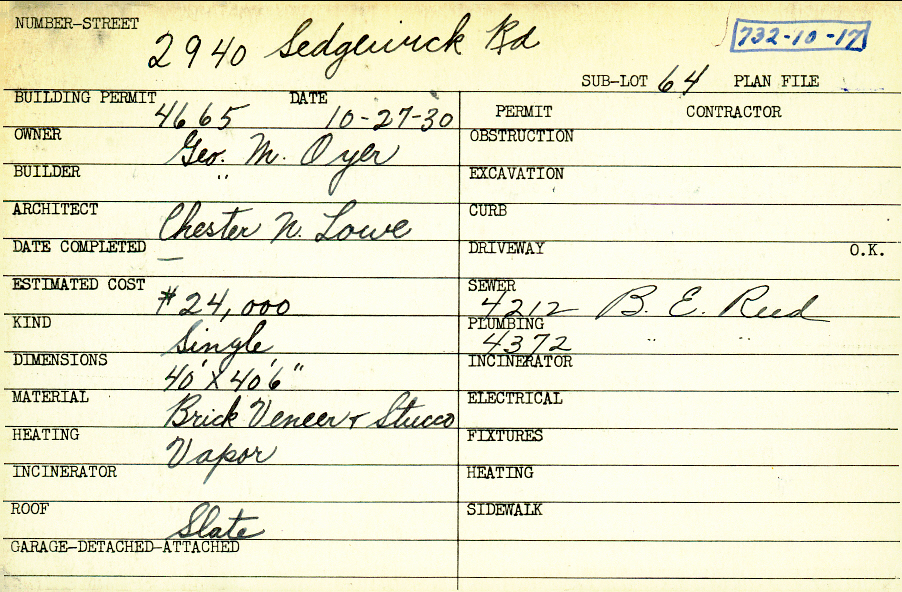 NUMBER-STREET
2940 Sedgewick Rd
732-10-17
SUB-LOT 64 PLAN FILE
BUILDING PERMIT 4665 DATE 10-27-30
PERMIT CONTRACTOR
OWNER Geo. M. Oyer
OBSTRUCTION
BUILDER "
EXCAVATION
ARCHITECT Chester N. Lowe
CURB
DATE COMPLETED —
DRIVEWAY O.K.
ESTIMATED COST $24,000
SEWER 4212 B. E. Reed
KIND Single
PLUMBING 4372 " "
DIMENSIONS 40' X 40'6"
INCINERATOR
MATERIAL Brick Veneer + Stucco
ELECTRICAL
HEATING Vapor
FIXTURES
INCINERATOR
HEATING
ROOF Slate
SIDEWALK
GARAGE-DETACHED-ATTACHED